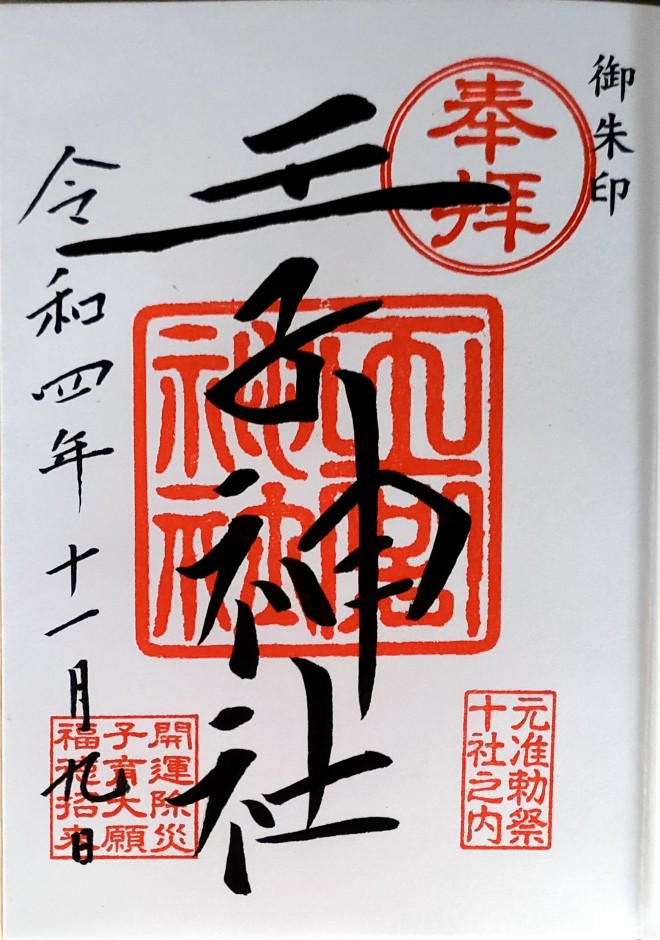 御朱印
奉拝
王子神社
元准勅祭
十社之内
令和四年十一月九日
開運除災
子育大願
福徳招来